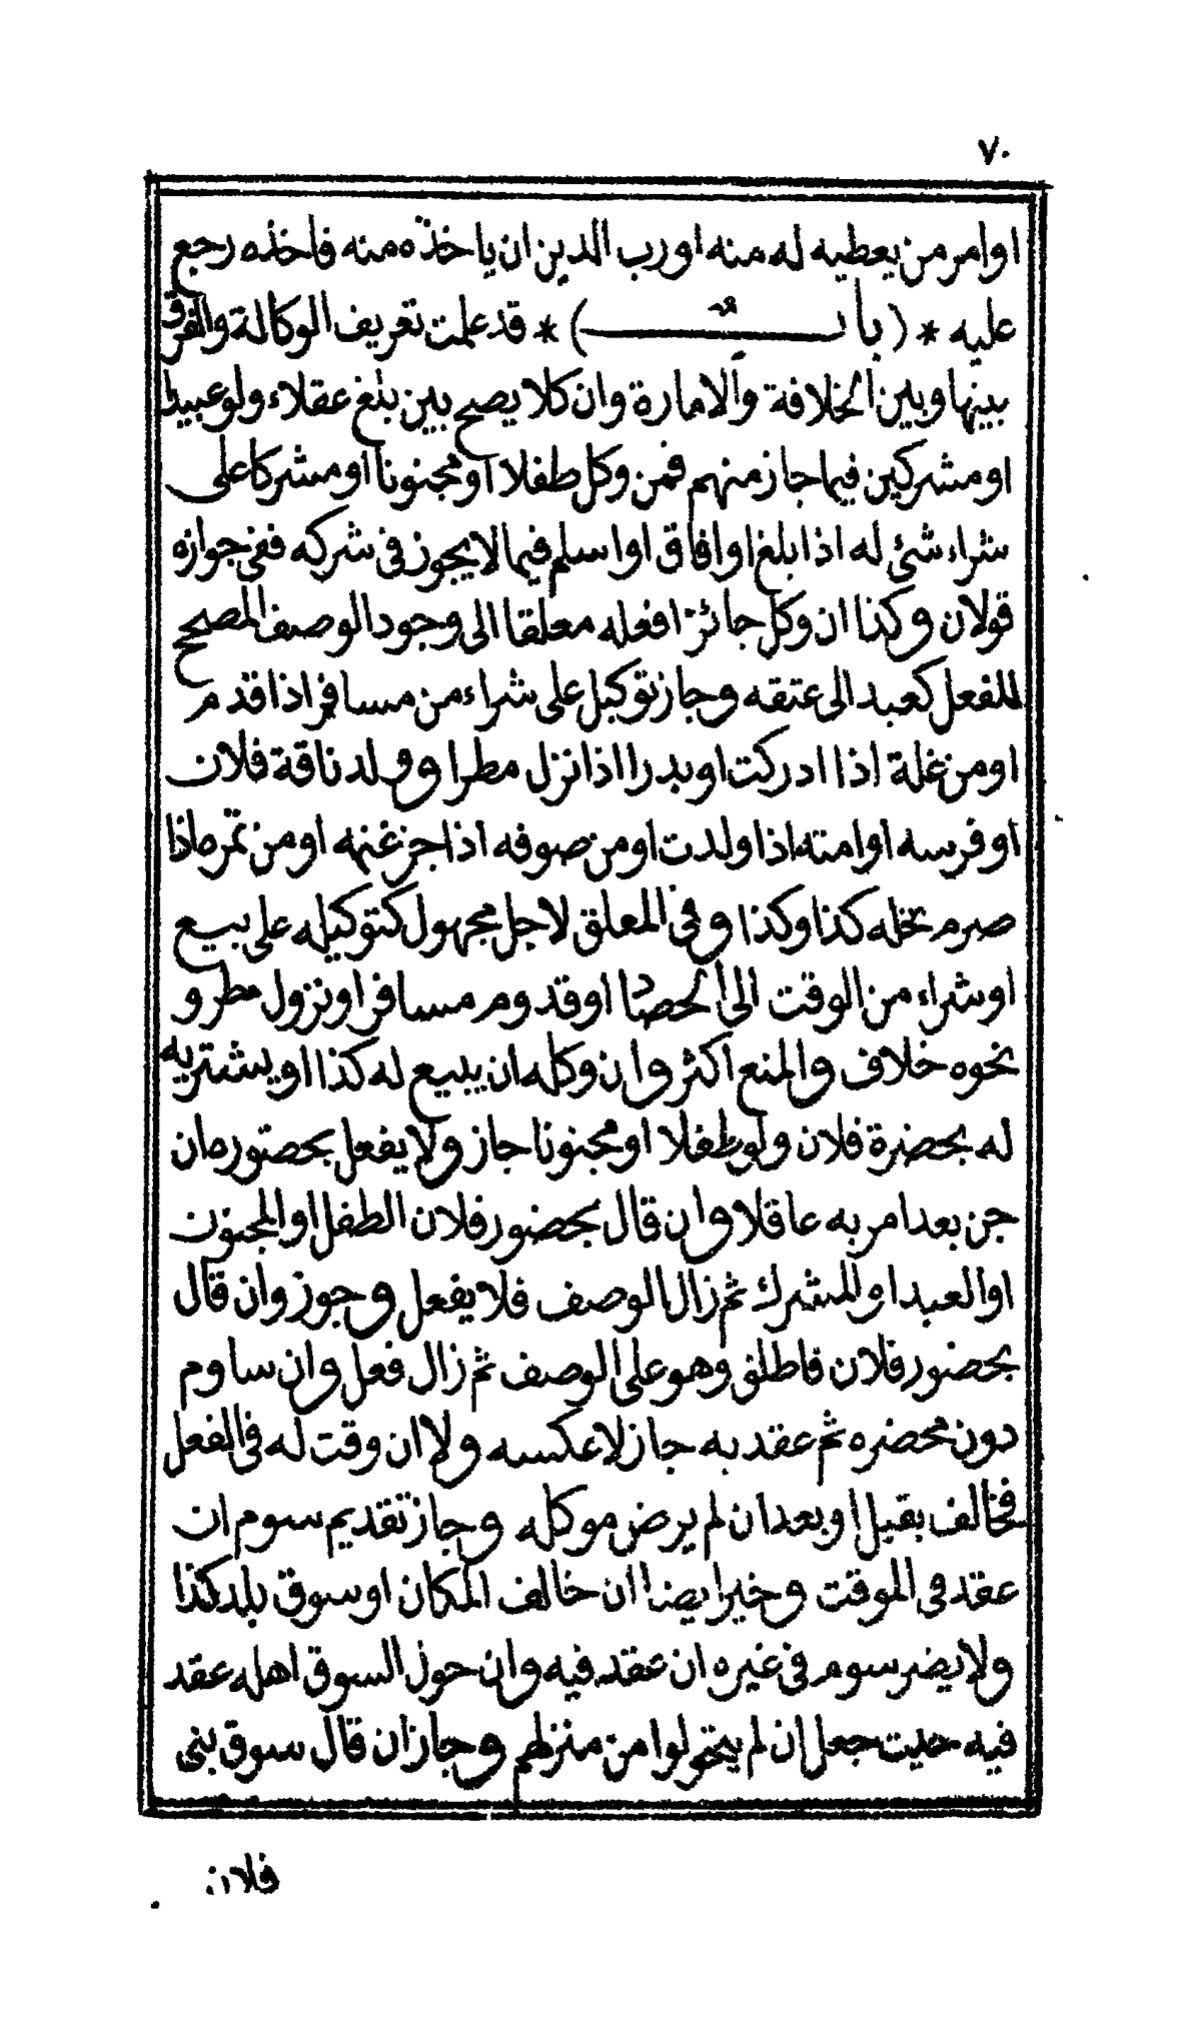 ٧٠
اوامر من يعطيه له منه اورب الدين ان ياخذه منه فاخذه رجع
عليه * ( باب ) * قد علمت تعريف الوكالة والفرق
بينها وبين الخلافة والامارة وان كلا يصح بين بلغ عقلاء ولو عبيدا
او مشركين فيما جاز منهم فمن وكل طفلا او مجنونا او مشركا على
شراء شئ له اذا بلغ او افاق او اسلم فيما لا يجوز فى شركه ففى جوازه
قولان وكذا ان وكل جائزا فعله معلقا الى وجود الوصف المصحح
للفعل كعبد الى عتقه وجاز توكيل على شراء من مسافر اذا قدم
او من غلة اذا ادركت او بدرا اذا نزل مطرا وولد ناقة فلان
او فرسه او امته اذا ولدت او من صوفه اذا جز غنمه او من تمره اذا
صرم نخله كذا وكذا وفى المعلق لاجل مجهول كتوكيله على بيع
او شراء من الوقت الى الحصاد او قدوم مسافر او نزول مطر و
نحوه خلاف والمنع اكثر وان وكله ان يبيع له كذا او يشتريه
له بحضرة فلان ولو طفلا او مجنونا جاز ولا يفعل بحضوره ان
جن بعد امر به عاقلا وان قال بحضور فلان الطفل او المجنون
او العبد او المشرك ثم زال الوصف فلا يفعل وجوز وان قال
بحضور فلان فاطلق وهو على الوصف ثم زال فعل وان ساوم
دون محضره ثم عقد به جاز لا عكسه ولا ان وقت له فى الفعل
فخالف بقبل او بعد ان لم يرض موكله وجاز تقديم سوم ان
عقد فى الموقت وخير ايضا ان خالف المكان او سوق بلد كذا
ولا يضر سوم فى غيره ان عقد فيه وان حول السوق اهله عقد
فيه حيث جعل ان لم يتحولوا من منزلهم وجاز ان قال سوق بنى
فلان